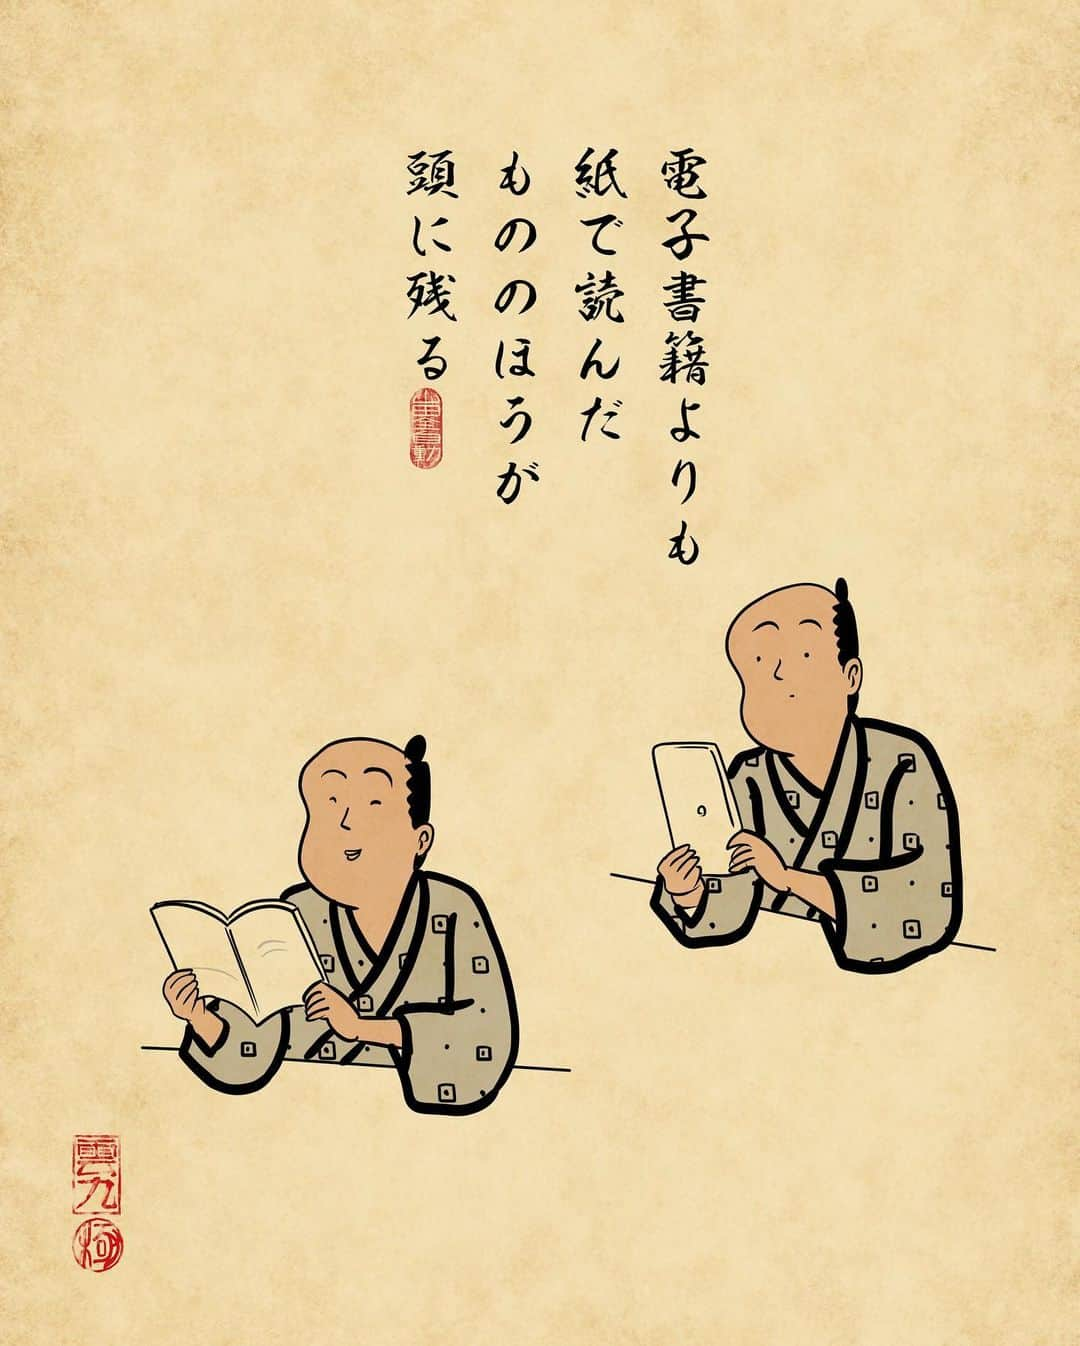 電子書籍よりも
紙で読んだ
もののほうが
頭に残る